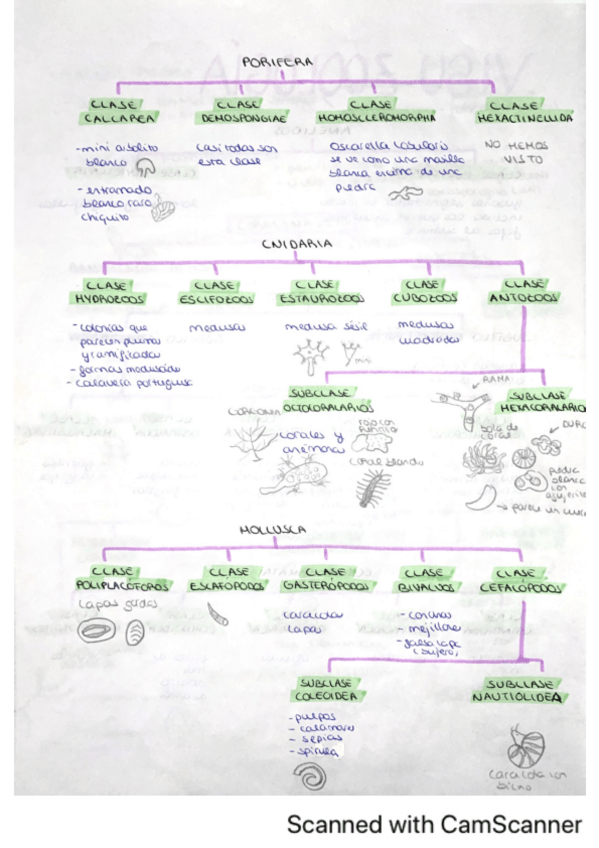 PORIFERA
CLASE CALCAREA
CLASE DEMOSPONGIAE
CLASE HOMOSCLEROMORPHA
CLASE HEXACTINELLIDA
-mini arbolito
blanco
-entramado
blanco raro
chiquito
casi todas son
esta clase
Oscarella lobularis
se ve como una
blanca encima de una
piedra
NO HEMOS
VISTO
CNIDARIA
CLASE HYDROZOOS
CLASE ESCIFOZOOS
CLASE ESTAUROZOOS
CLASE CUBOZOOS
CLASE ANTOZOOS
-colonias que
parecen plumas
y ramificadas
-formas medusoides
- carabela portuguesa
medusas
medusa sésil
medusas
cuadradas
SUBCLASE
OCTOCORALARIOS
corales y
coral blando
RAMA
SUBCLASE
HEXACORALARIO
bola de
coral
DURO
piedra
blanca
con
agujerito
→ parece un
MOLLUSCA
CLASE POLIPLACÓFOROS
CLASE ESCAFÓPODOS
CLASE GASTERÓPODOS
CLASE BIVALVOS
CLASE CEFALÓPODOS
Lapas gordas
caracolas
lapas
- conchas
- mejillones
- falsa lapa
SUBCLASE
COLEOIDEA
SUBCLASE
NAUTIOLIDEA
-pulpos
- calamares
- sepias
- spirula
caracola con
bicho
Scanned with CamScanner